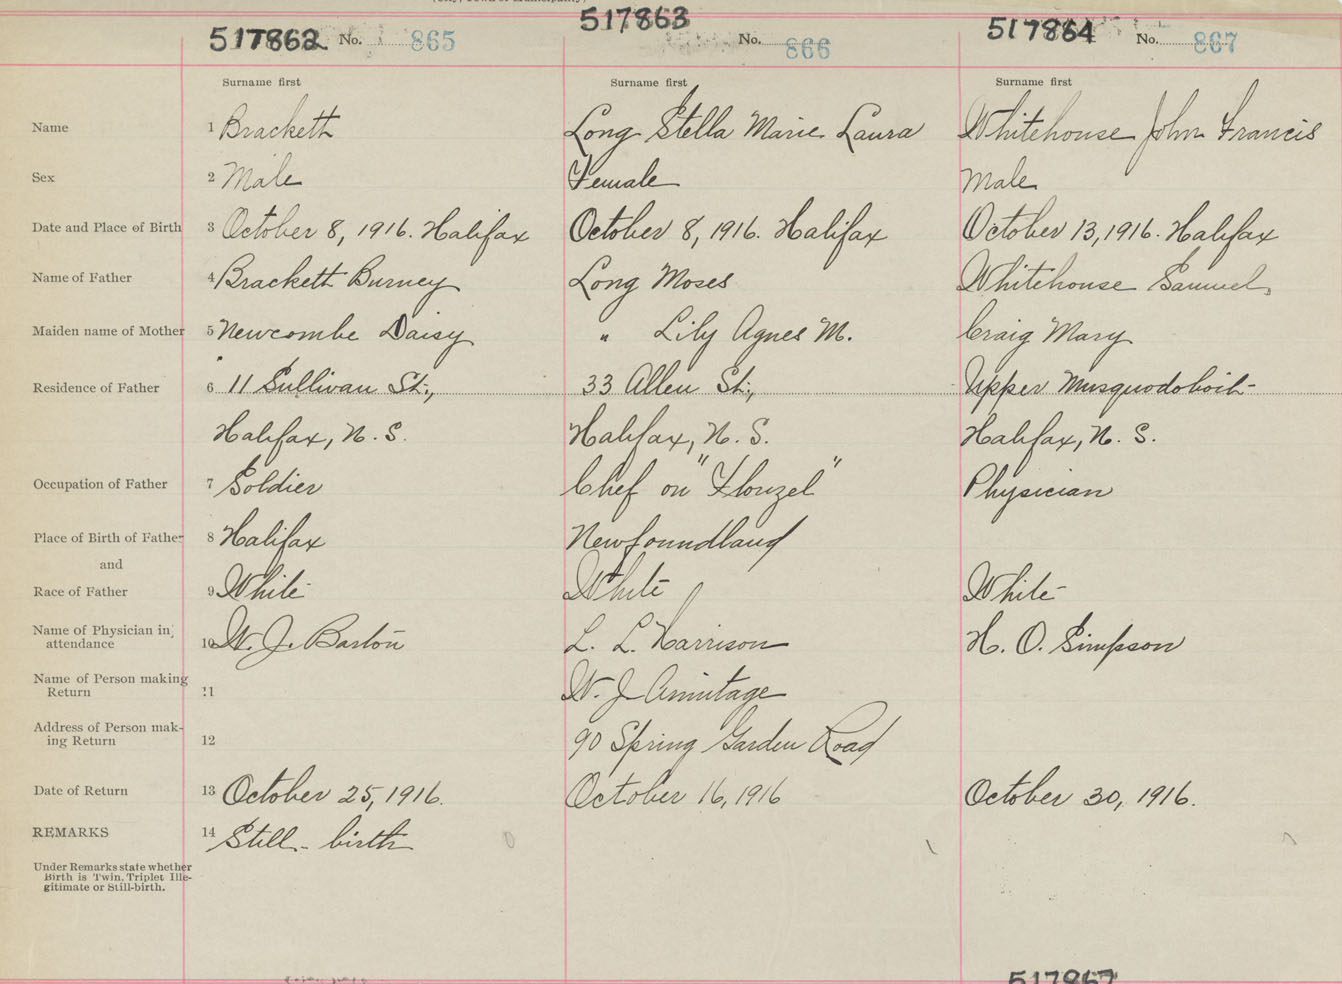 (City, Town or Municipality)
517862 No. 865
517863 No. 866
517864 No. 867
Surname first Surname first Surname first
Name 1 Brackett Long Stella Marie Laura Whitehouse John Francis
Sex 2 Male Female Male
Date and Place of Birth 3 October 8, 1916. Halifax October 8, 1916. Halifax October 13, 1916. Halifax
Name of Father 4 Brackett Burney Long Moses Whitehouse Samuel
Maiden name of Mother 5 Newcombe Daisy " Lily Agnes M. Craig Mary
Residence of Father 6 11 Sullivan St., 33 Allen St., Upper Musquodoboit
Halifax, N. S. Halifax, N. S. Halifax, N. S.
Occupation of Father 7 Soldier Chef on "Florizel" Physician
Place of Birth of Father 8 Halifax Newfoundland
and
Race of Father 9 White White White
Name of Physician in
attendance 10 W. J. Barton L. L. Harrison H. O. Simpson
Name of Person making
Return 11 W. J. Armitage
Address of Person mak-
ing Return 12 90 Spring Garden Road
Date of Return 13 October 25, 1916. October 16, 1916 October 30, 1916.
REMARKS 14 Still-birth
Under Remarks state whether
Birth is Twin, Triplet Ille-
gitimate or Still-birth.
517867